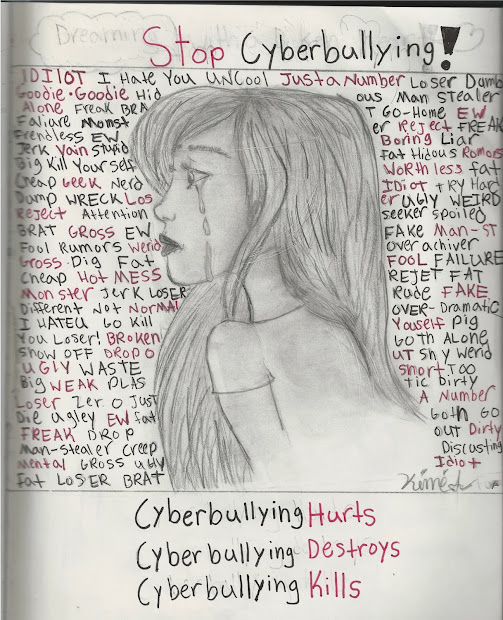 Dreaming
Stop Cyberbullying!
IDIIOT I Hate You UNCool Just a Number Loser Dumb
Goodie·Goodie Hid ous Man Stealer
Alone Freak BRA T Go-Home EW
Faliure Monst er Reject FREAK
Frendless EW Boring Liar
Jerk Vain Stupid Fat Hidous Rumors
Big Kill Yourself Worthless fat
Cheap Geek Nerd Idiot Try Hard
Dump WRECK Los er Ugly WEIRD
Reject Attention seeker spoiled
BRAT GROSS EW FAKE Man-ST
Fool Rumors Werid over achiver
Gross Pig Fat FOOL FAILURE
Cheap Hot MESS REJET FAT
Monster Jerk LOSER Rude FAKE
Different Not Normal OVER-Dramatic
I HATE U GO Kill Youself Pig
You Loser! BROKEN Goth Alone
Show OFF DROP O UT Shy Werid
UGLY WASTE Short TOO
Big WEAK PLAS tic Dirty
Loser Zero Just A Number
Die Ugley EW fat Goth GO
FREAK DROP out Dirty
Man-Stealer Creep Discusting
Mental GROSS ugly Idiot
Fat LOSER BRAT
Cyberbullying Hurts
Cyberbullying Destroys
Cyberbullying Kills